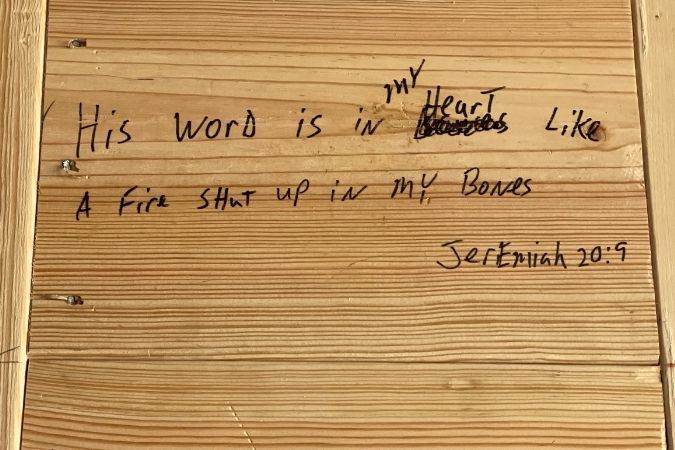 His WorD is in MY HearT Like
A Fire SHut up in MY Bones
JerEmiah 20:9